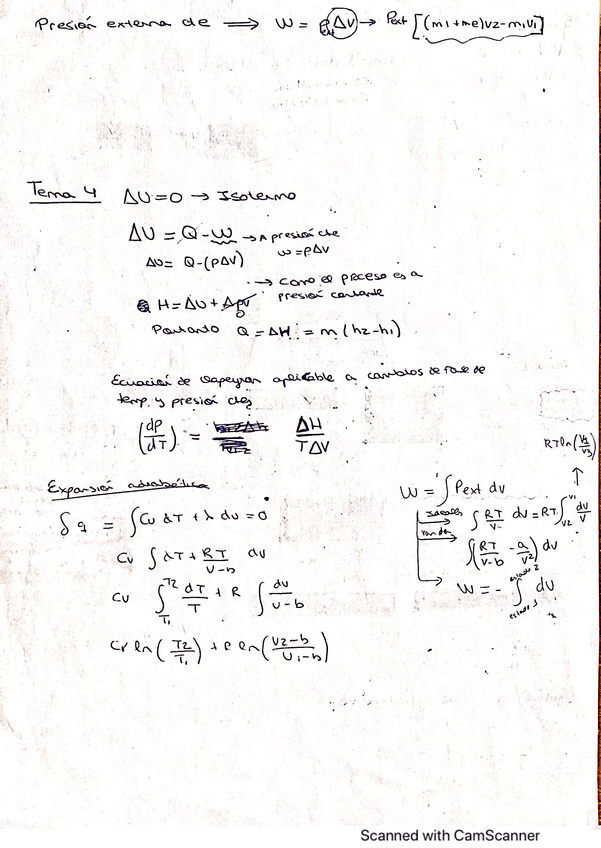 Presión externa cte ⟹ W = Pext ΔV → Pext [(m1+me)v2-m1v1]
Tema 4 ΔU=0 → Isotermo
ΔU = Q-W → A presión cte
W=PΔV
ΔU= Q-(PΔV)
→ Como el proceso es a
presión constante
H=ΔU+Δpv
0
Portanto Q=ΔH = m(h2-h1)
Ecuación de Clapeyron aplicable a cambios de fase de
temp. y presión ctes
(dP/dT) = ΔH/TΔV
Expansión adiabática
δq = ∫Cv dT + λ dv = 0
Cv ∫ dT + RT/V-b dv
Cv ∫T1 T2 dT/T + R ∫ dv/v-b
Cv ln(T2/T1) + R ln(V2-b/V1-b)
RTln(V1/V2)
↑
W = ∫ Pext dv
→ ∫ RT/V dv = RT ∫V2 V1 dv/V
∫(RT/V-b - a/V²) dv
W = - ∫estado 1 estado 2 dv
Scanned with CamScanner